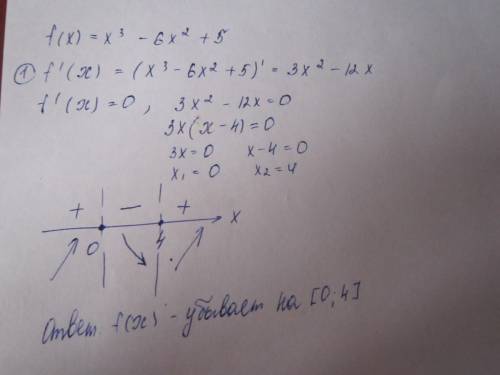 f(x) = x³ - 6x² + 5
① f'(x) = (x³ - 6x² + 5)' = 3x² - 12x
f'(x) = 0, 3x² - 12x = 0
3x(x - 4) = 0
3x = 0 x - 4 = 0
x₁ = 0 x₂ = 4
+ - +
0 4 x
Ответ. f(x) - убывает на [0; 4]